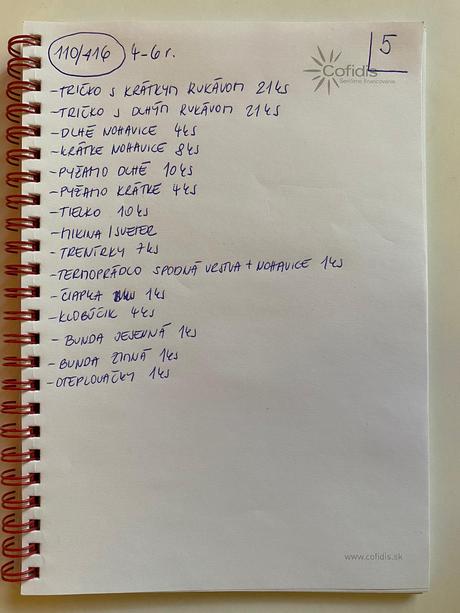 110/116 4-6 r.
5
Cofidis
- TRIČKO S KRÁTKYM RUKÁVOM 21 KS
- TRIČKO S DLHÝM RUKÁVOM 21 KS
- DLHÉ NOHAVICE 4 KS
- KRÁTKE NOHAVICE 8 KS
- PYŽAMO DLHÉ 10 KS
- PYŽAMO KRÁTKE 4 KS
- TIELKO 10 KS
- MIKINA / SVETER
- TRENÍRKY 7 KS
- TERMOPRÁDLO SPODNÁ VRSTVA + NOHAVICE 1 KS
- ČIAPKA 1 KS
- KLOBÚČIK 4 KS
- BUNDA JESENNÁ 1 KS
- BUNDA ZIMNÁ 1 KS
- OTEPLOVAČKY 1 KS
www.cofidis.sk